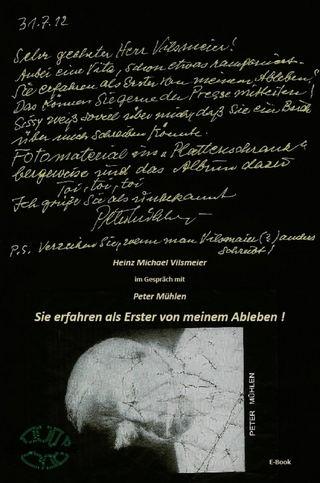 31.7.12
Sehr geehrter Herr Vilsmeier!
Anbei eine Vita, schon etwas ramponiert.
Sie erfahren als Erster von meinem Ableben!
Das können Sie gerne der Presse mitteilen!
Sissy weiß soviel über mich, daß Sie ein Buch
über mich schreiben könnte.
Fotomaterial im „Plattenschrank“
bergeweise sind das Album dazu
toi, toi, toi
Ich grüße Sie als unbekannt
Peter Mühlen
P.S. Verzeihen Sie, wenn man Vilsmaier (?) anders
schreibt!
Heinz Michael Vilsmeier
im Gespräch mit
Peter Mühlen
Sie erfahren als Erster von meinem Ableben !
PETER MÜHLEN
E-Book